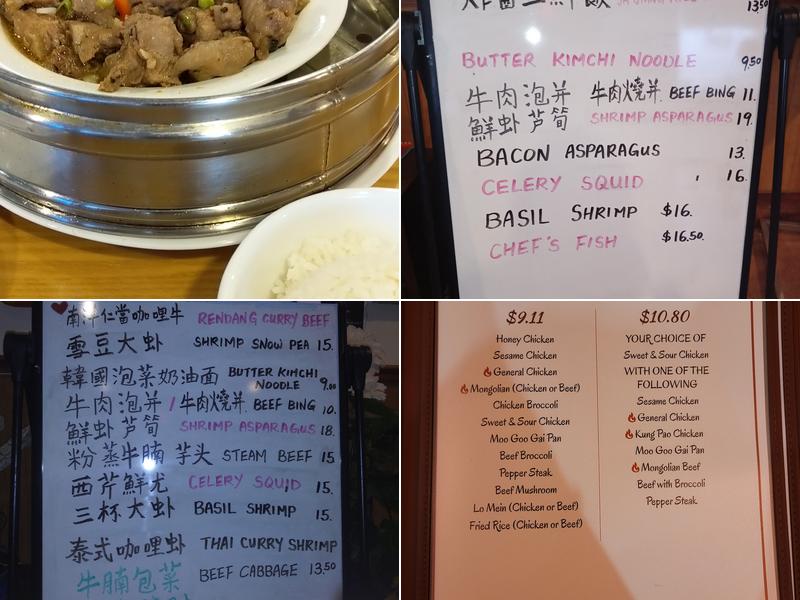 13.50
BUTTER KIMCHI NOODLE 9.50
牛肉泡并 牛肉燒并 BEEF BING 11.
鮮虾芦筍 SHRIMP ASPARAGUS 19.
BACON ASPARAGUS 13.
CELERY SQUID 16.
BASIL SHRIMP $16.
CHEF'S FISH $16.50
南洋仁當咖哩牛 RENDANG CURRY BEEF
雪豆大虾 SHRIMP SNOW PEA 15.
韓國泡菜奶油面 BUTTER KIMCHI
NOODLE 9.00
牛肉泡并 / 牛肉燒并 BEEF BING 10.
鮮虾芦筍 SHRIMP ASPARAGUS 18.
粉蒸牛腩芋头 STEAM BEEF 15
西芹鮮尤 CELERY SQUID 15.
三杯大虾 BASIL SHRIMP 15.
泰式咖哩虾 THAI CURRY SHRIMP
牛腩包菜 BEEF CABBAGE 13.50
$9.11
Honey Chicken
Sesame Chicken
General Chicken
Mongolian (Chicken or Beef)
Chicken Broccoli
Sweet & Sour Chicken
Moo Goo Gai Pan
Beef Broccoli
Pepper Steak
Beef Mushroom
Lo Mein (Chicken or Beef)
Fried Rice (Chicken or Beef)
$10.80
YOUR CHOICE OF
Sweet & Sour Chicken
WITH ONE OF THE
FOLLOWING
Sesame Chicken
General Chicken
Kung Pao Chicken
Moo Goo Gai Pan
Mongolian Beef
Beef with Broccoli
Pepper Steak